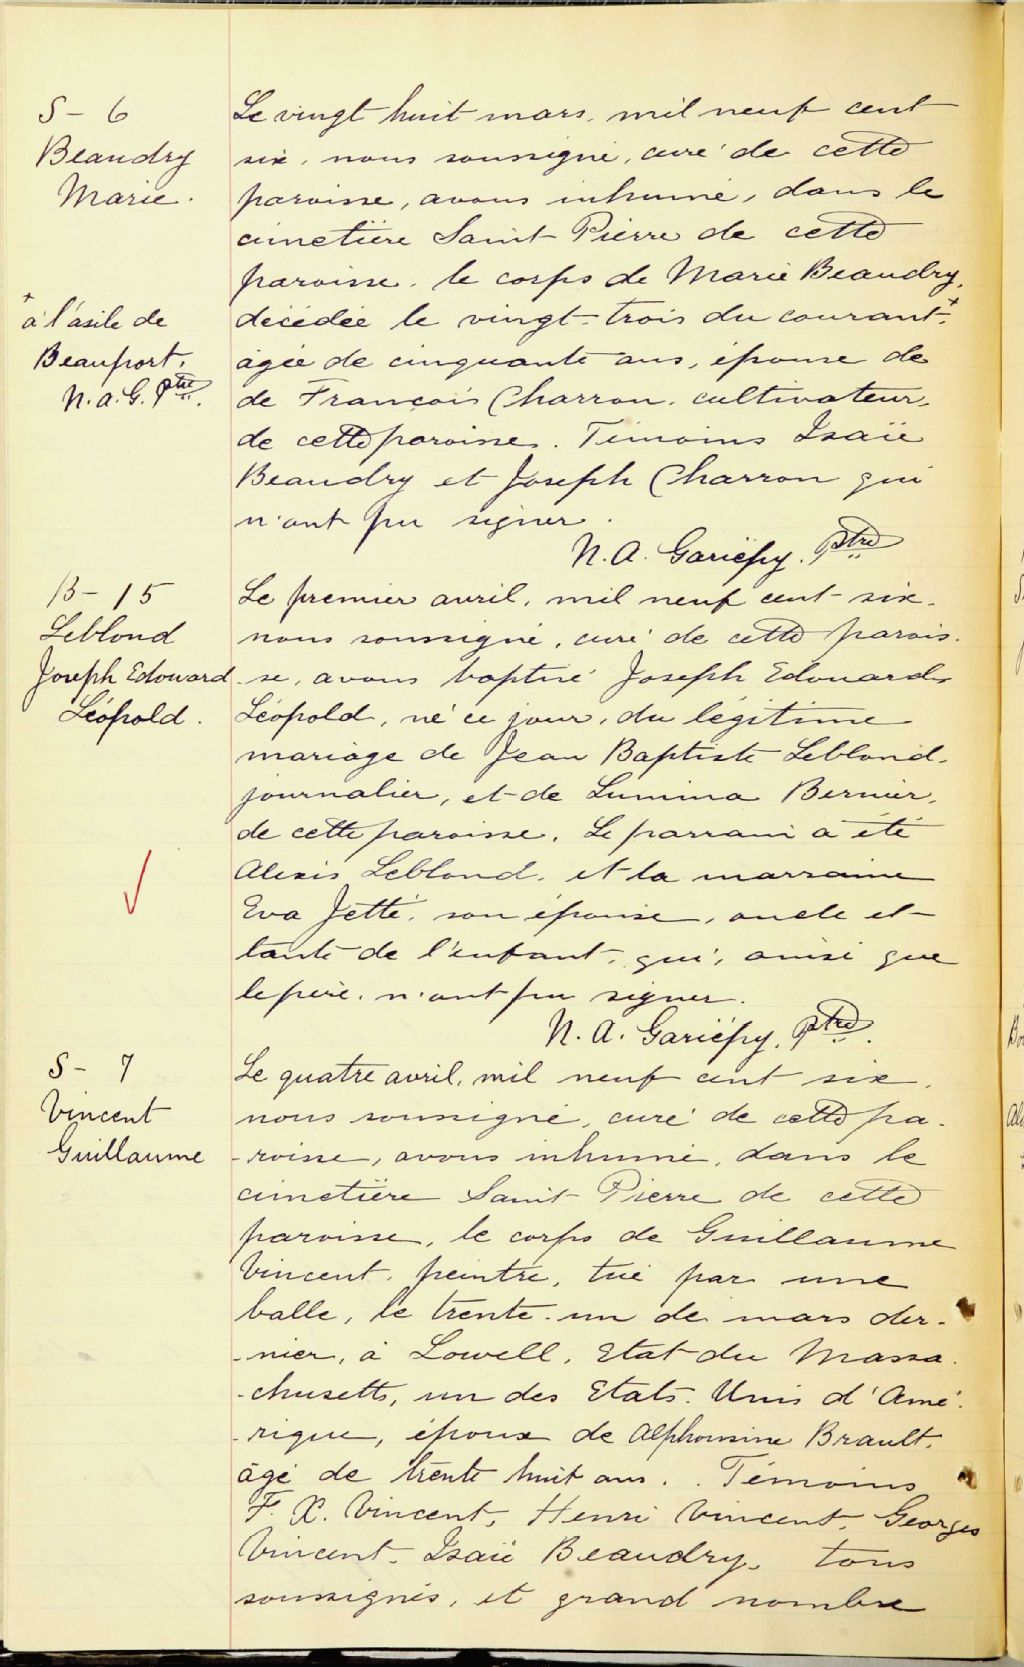 S - 6
Beaudry
Marie.
Le vingt huit mars, mil neuf cent
six, nous soussigné, curé de cette
paroisse, avons inhumé, dans le
cimetière Saint Pierre de cette
paroisse, le corps de Marie Beaudry,
décédée le vingt-trois du courant,+
âgée de cinquante ans, épouse de
de François Charron, cultivateur,
de cette paroisse. Témoins Isaïe
Beaudry et Joseph Charron qui
n'ont pu signer.
N. A. Gariépy. Ptre
+
à l'asile de
Beauport.
N. A. G. Ptre.
B - 15
Leblond
Joseph Edouard
Léopold.
Le premier avril, mil neuf cent six,
nous soussigné, curé de cette parois-
-se, avons baptisé Joseph Edouard
Léopold, né ce jour, du légitime
mariage de Jean Baptiste Leblond,
journalier, et de Lumina Bernier,
de cette paroisse. Le parrain a été
Alexis Leblond, et la marraine
Eva Jetté, son épouse, oncle et
tante de l'enfant, qui, ainsi que
le père, n'ont pu signer.
N. A. Gariépy, Ptre.
S - 7
Vincent
Guillaume
Le quatre avril, mil neuf cent six,
nous soussigné, curé de cette pa-
-roisse, avons inhumé, dans le
cimetière Saint Pierre de cette
paroisse, le corps de Guillaume
Vincent, peintre, tué par une
balle, le trente-un de mars der-
-nier, à Lowell, Etat du Massa-
-chusetts, un des Etats-Unis d'Amé-
-rique, époux de Alphonsine Brault,
âgé de trente huit ans. Témoins
F. X. Vincent, Henri Vincent, Georges
Vincent, Isaïe Beaudry, tous
soussignés, et grand nombre